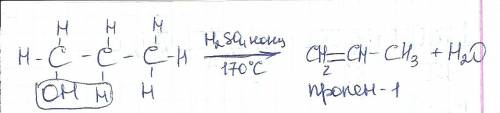 H H H
H - C - C - C - H H₂SO₄ конц 170°C CH₂=CH-CH₃ + H₂O
OH H H
пропен-1